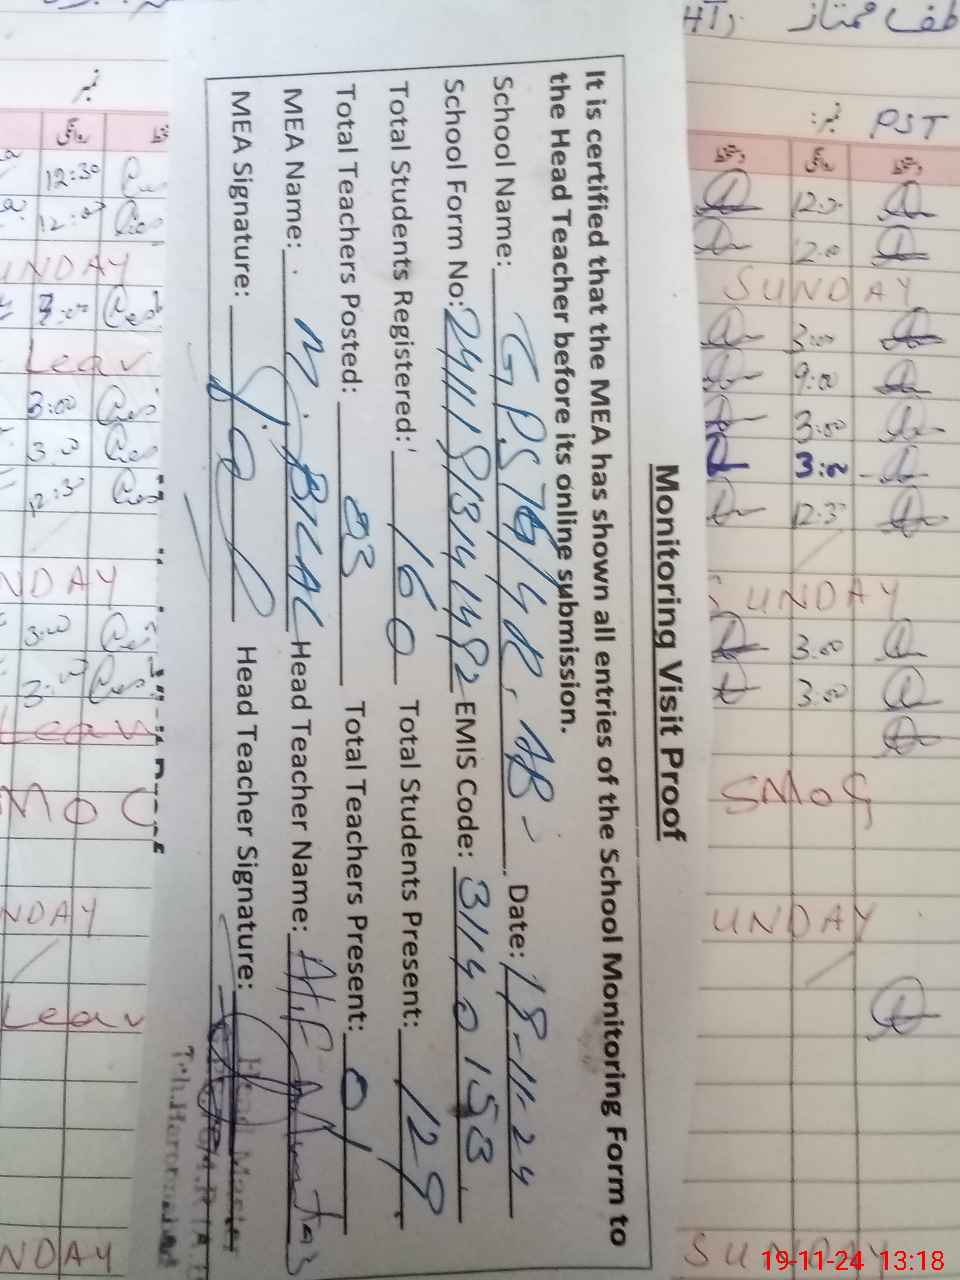 Monitoring Visit Proof
It is certified that the MEA has shown all entries of the School Monitoring Form to
the Head Teacher before its online submission.
School Name: G.P.S 76/4R, AB- Date: 18-11-24
School Form No: EMIS Code: 31140153
Total Students Registered: 160 Total Students Present: 129
Total Teachers Posted: 03 Total Teachers Present: 01
MEA Name: M. BILAL Head Teacher Name: Atif Mumtaz
MEA Signature: Head Teacher Signature:
Head Master
Teh. Haroonabad
PST
12:30
SUNDAY
3:00
9:00
3:00
3:00
12:30
SUNDAY
3:00
3:00
SMOG
UNDAY
SUNDAY
12:30
12:00
UNDAY
3:00
Leav
3:00
3:00
12:30
NDAY
3:00
3:00
Leav
MOG
NDAY
Leav
NDAY
19-11-24 13:18